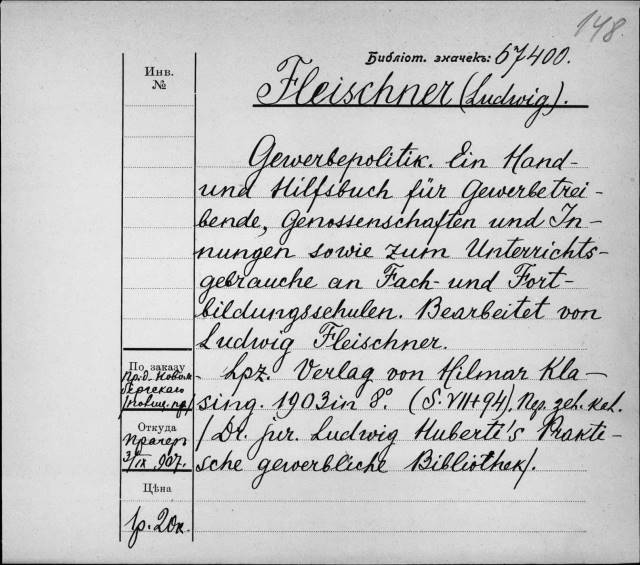 148.
Библіот. значекъ: 67400.
Инв.
№
Fleischner (Ludwig).
Gewerbepolitik. Ein Hand-
und Hilfsbuch für Gewerbetrei-
bende, Genossenschaften und In-
nungen sowie zum Unterrichts-
gebrauche an Fach- und Fort-
bildungsschulen. Bearbeitet von
Ludwig Fleischner.
Lpz. Verlag von Hilmar Kla-
sing. 1903 in 8°. (S. VII+94). Пер. zeh. kat.
/Dr. jur. Ludwig Huberti's Prakti-
sche gewerbliche Bibliothek/.
По заказу
Откуда
3/IX 907.
Цѣна
1р. 20к.